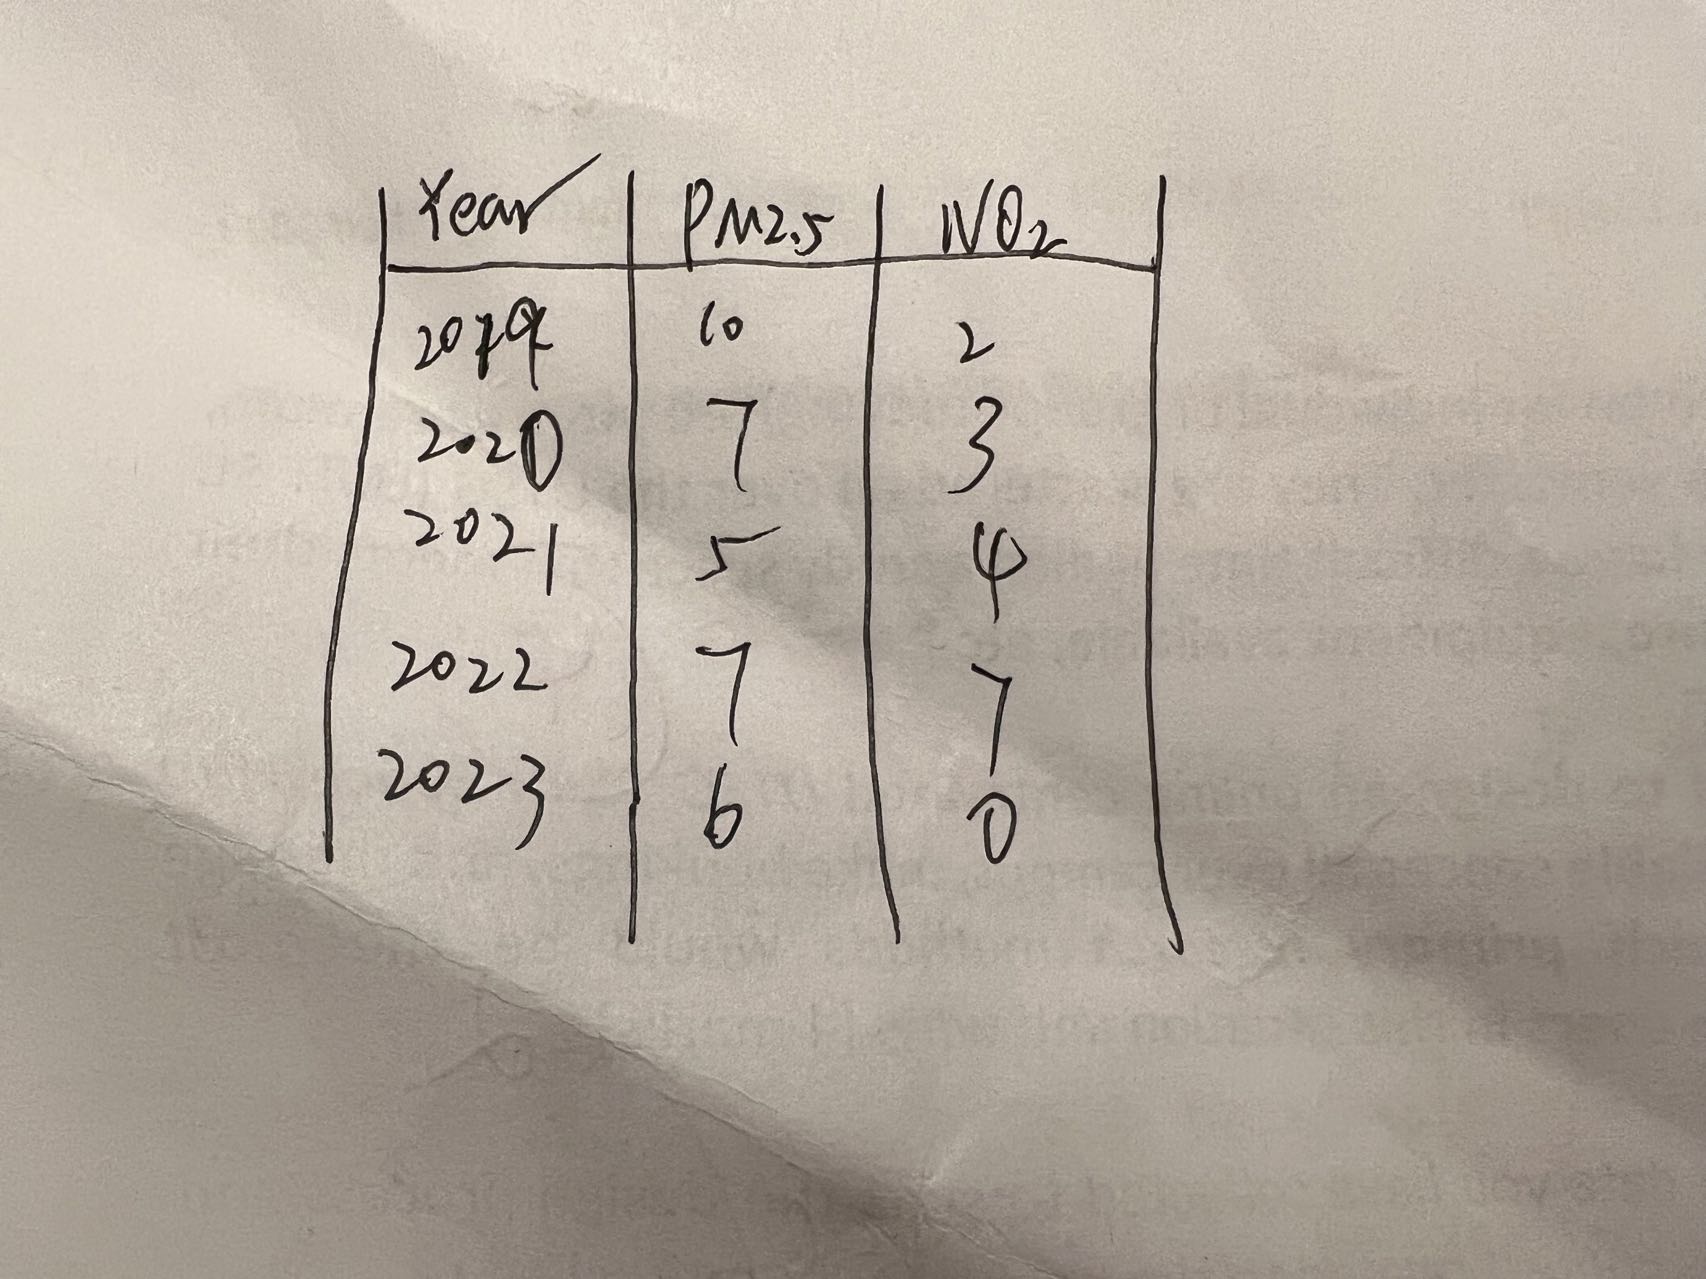 Year PM2.5 NO2
2019 10 2
2020 7 3
2021 5 4
2022 7 7
2023 6 0